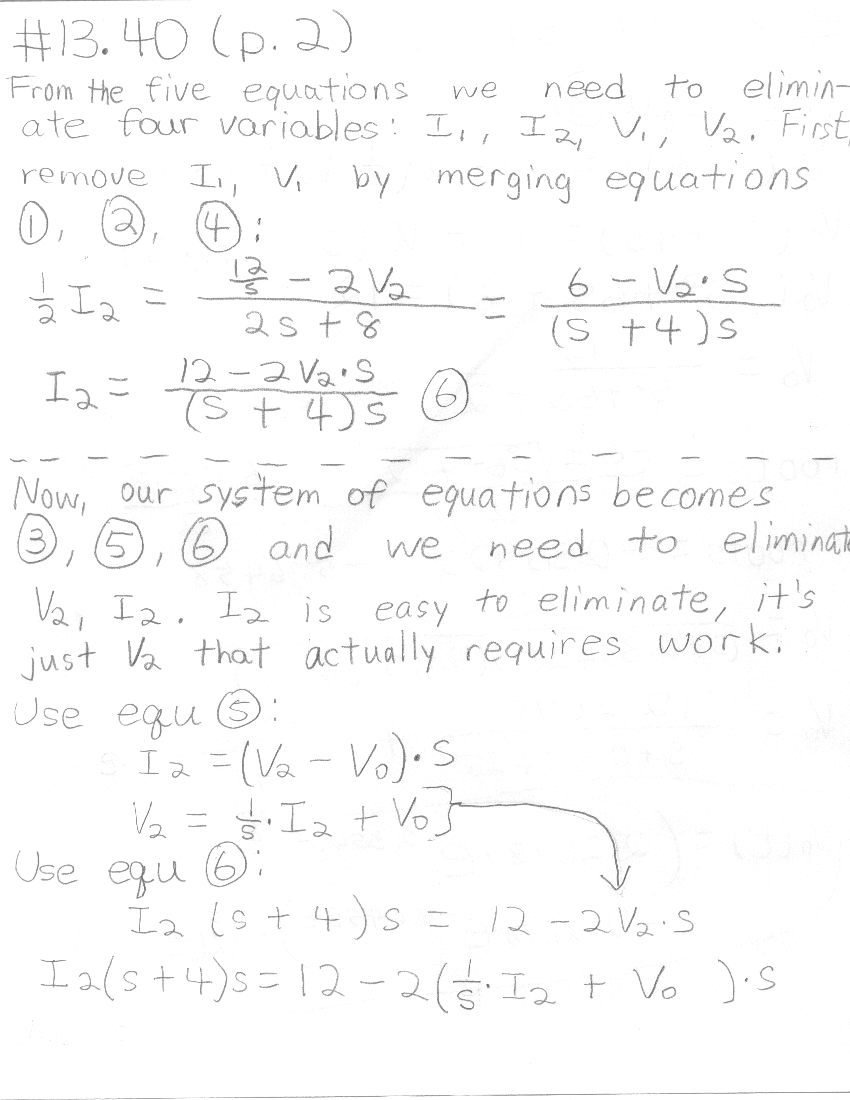 #13.40 (p. 2)
From the five equations we need to elimin-
ate four variables: I₁, I₂, V₁, V₂. First,
remove I₁, V₁ by merging equations
①, ②, ④:
½ I₂ = (12/s - 2V₂)/(2s + 8) = (6 - V₂·s)/((s + 4)s)
I₂ = (12 - 2V₂·s)/((s + 4)s) ⑥
Now, our system of equations becomes
③, ⑤, ⑥ and we need to eliminat
V₂, I₂. I₂ is easy to eliminate, it's
just V₂ that actually requires work.
Use equ ⑤:
I₂ = (V₂ - V₀)·s
V₂ = 1/s·I₂ + V₀
Use equ ⑥:
I₂ (s + 4)s = 12 - 2V₂·s
I₂(s+4)s = 12 - 2(1/s·I₂ + V₀)·s